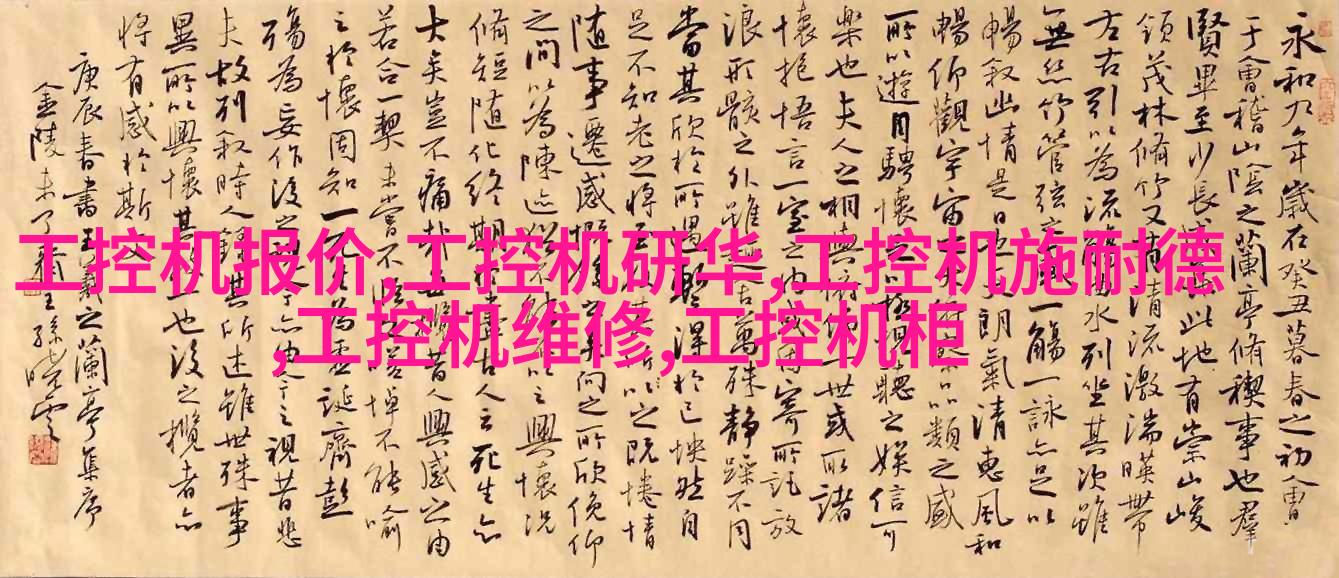 工控机报价,工控机研华,工控机施耐德
,工控机维修,工控机柜
永和九年歲在癸丑暮春之初會
于會稽山陰之蘭亭脩禊事也羣
賢畢至少長此地有崇山峻
領茂林脩竹又有清流激湍暎帶
左右引以為流觴曲水列坐其次雖
無絲竹管弦之一觴一詠亦足以
暢敘幽情是日也天朗氣清惠風和
暢仰觀宇宙品類之盛
所以遊目騁懷足以極視聽之娛信可
樂也夫人之相與俯仰一世或取諸
懷抱悟言一室之內或寄所託放
浪形骸之外雖萬殊靜躁不同
當其欣於所遇蹔得於己怏然自
足不知老之將至所之既惓情
隨事遷感慨向之所欣俛仰
之間以為陳迹以之興懷況
脩短隨化終期於盡古人云死生亦
大矣豈不痛哉昔人興感之由
若合一契未嘗不嗟悼不能喻
之於懷固知一為虛誕齊彭
殤為妄作後之亦由之視昔悲
夫故列敘時人錄其所述雖世殊事
異所以興懷其一也後之攬者亦
將有感於斯
庚辰春書王羲之蘭亭集序
金陵王孫曉雲